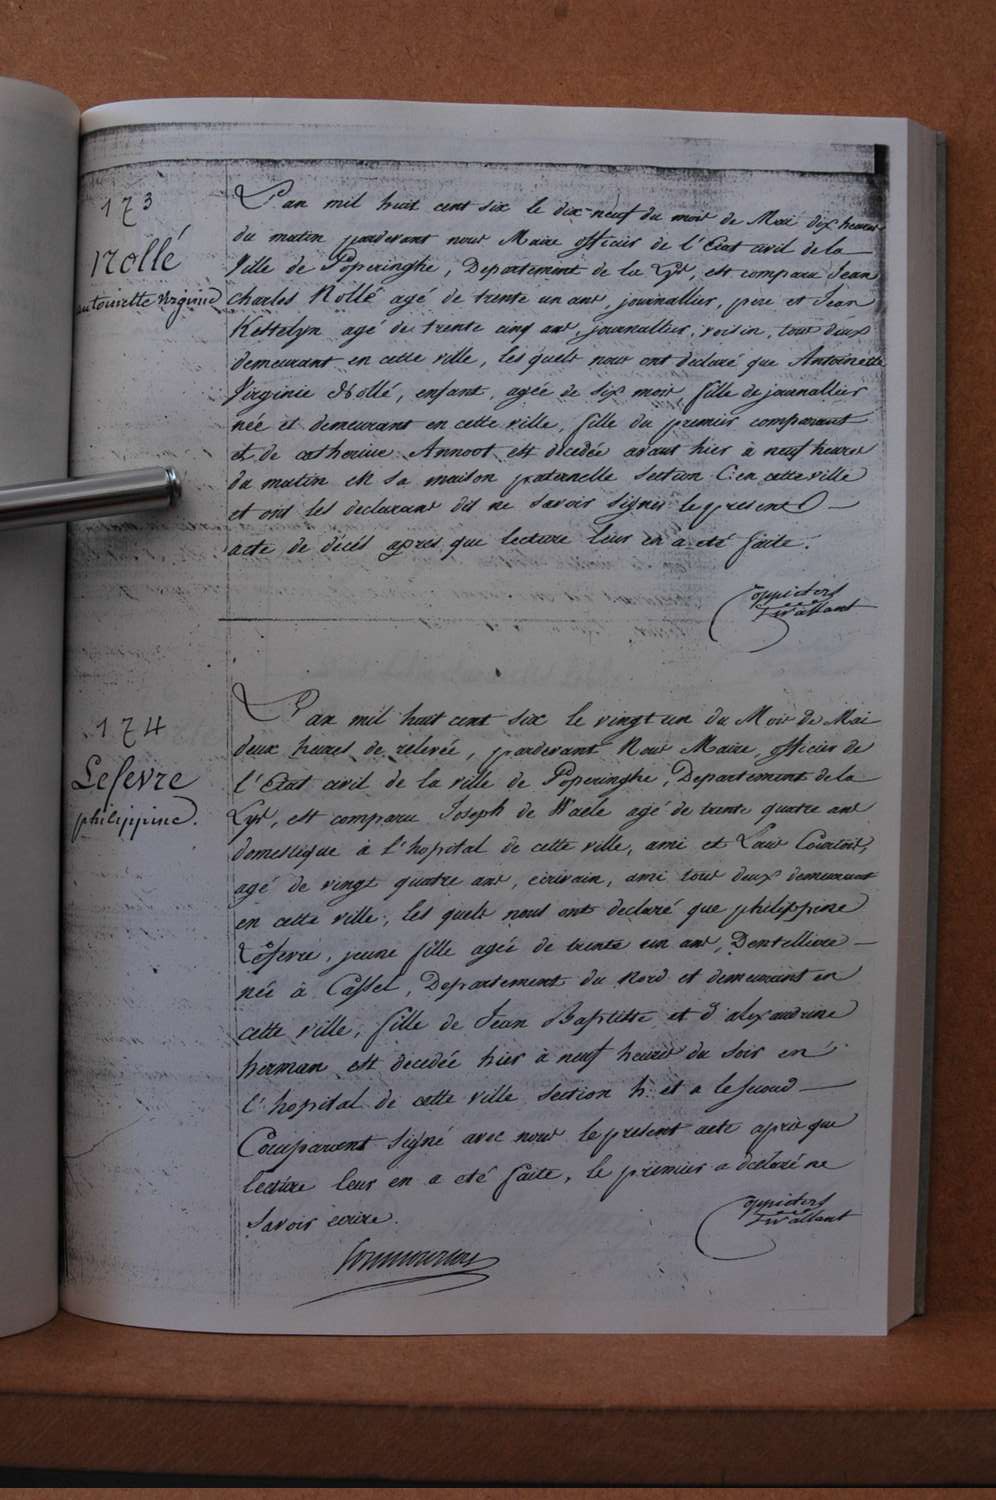 173
Rollé
antoinette Virginie
L'an mil huit cent six le dix-neuf du mois de Mai dix heures
du matin pardevant nous Maire officier de l'Etat civil de la
Ville de Poperinghe, Departement de la Lys, est comparu Jean
Charles Rollé agé de trente un ans, journallier, pere et Jean
Kettelyn agé de trente cinq ans, journallier, voisin, tous deux
demeurant en cette ville, les quels nous ont declaré que Antoinette
Virginie Rollé, enfant, agée de six mois, fille de journallier
née et demeurant en cette ville, fille du premier comparant
et de catherine Annoot est decedée avant hier à neuf heures
du matin en sa maison paternelle section C. en cette ville
et ont les declarans dit ne savoir signer le present
acte de décés après que lecture leur en a eté faite.
174
Lefevre
philippine.
L'an mil huit cent six le vingt un du Mois de Mai
deux heures de relevée, pardevant Nous Maire, officier de
l'Etat civil de la ville de Poperinghe, Departement de la
Lys, est comparu Joseph de Waele agé de trente quatre ans
domestique à l'hopital de cette ville, ami et Louis Courtois,
agé de vingt quatre ans, ecrivain, ami tous deux demeurant
en cette ville, les quels nous ont declaré que philippine
Lefevre, jeune fille agée de trente un ans, Dentelliere
née à Cassel, Departement du Nord et demeurant en
cette ville, fille de Jean Baptiste et d'alexandrine
herman est decedée hier à neuf heures du soir en
l'hopital de cette ville section h. et a le second
Comparant signé avec nous le present acte après que
lecture leur en a eté faite, le premier a declaré ne
savoir ecrire.